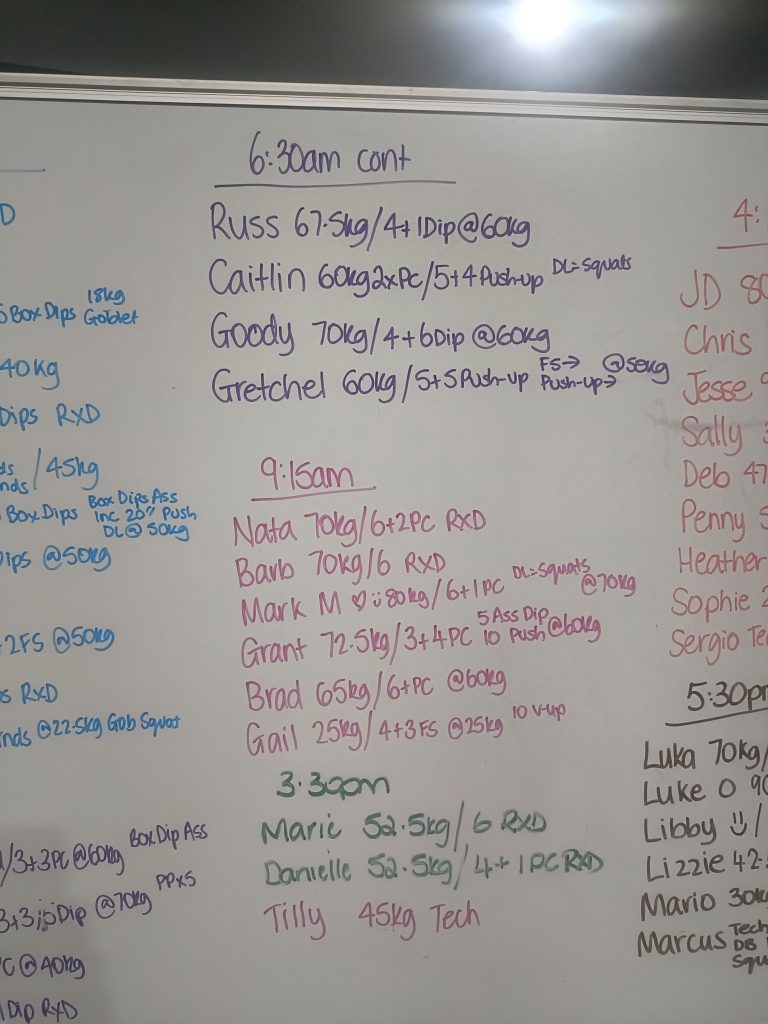 6:30am cont
Russ 67.5kg/4+1Dip@60kg
Caitlin 60kg2xPC/5+4Push-up DL=squats
Goody 70kg/4+6Dip @60kg
Gretchel 60kg/5+5Push-up FS→ @50kg
Push-up→
9:15am
Nata 70kg/6+2PC RXD
Barb 70kg/6 RXD
Mark M ♡ü80kg/6+1PC DL=squats @70kg
Grant 72.5kg/3+4PC 5 Ass Dip @60kg
10 Push
Brad 65kg/6+PC @60kg
Gail 25kg/4+3FS @25kg 10 V-up
3.30pm
Marie 52.5kg/6 RXD
Danielle 52.5kg/4+1PC RXD
Tilly 45kg Tech
D
Box Dips 18kg
Goblet
40kg
Dips RXD
/45kg
Box Dips Box Dips Ass
Inc 20" Push
DL@50kg
Dips @50kg
2FS @50kg
RXD
@22.5kg Gob Squat
/3+3PC@60kg Box Dip Ass
3+3 Dip @70kg PPx5
C@40kg
1Dip RXD
4:
JD 80
Chris
Jesse
Sally 3
Deb 47
Penny 5
Heather
Sophie 2
Sergio Te
5:30pm
Luka 70kg/
Luke O 90
Libby ü/
Lizzie 42.
Mario 30k
Marcus Tech
DB
Squ